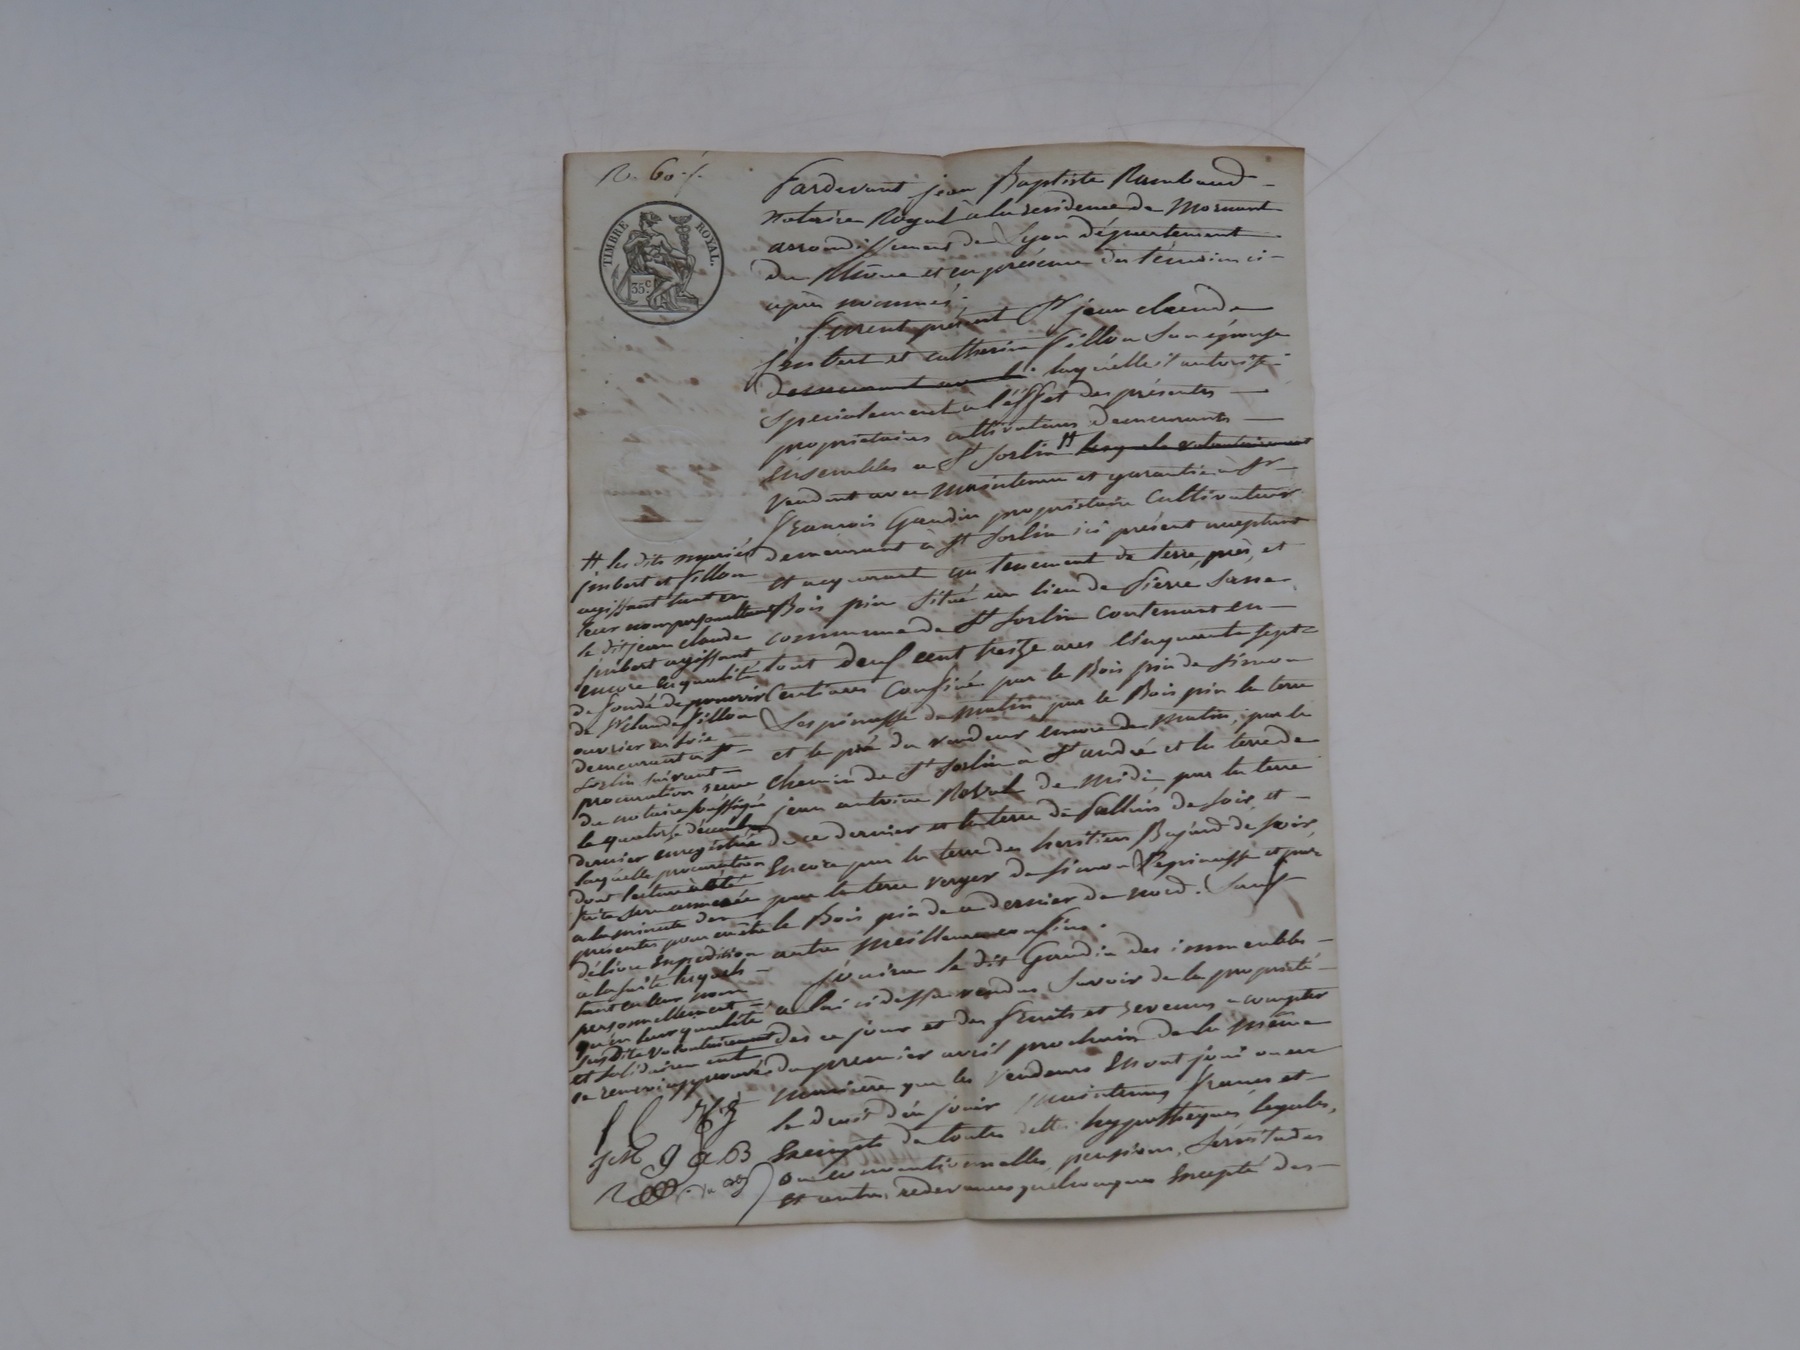 N. 60
TIMBRE ROYAL.
35 c.
Pardevant jean Baptiste Rambaud
notaire Royal à la residence de Mornant
arrondissement de Lyon département
du Rhône et en présence des témoins ci-
après nommés;
furent présent Sr jean claude
jmbert et catherine fillon son épouse
demeurant laquelle il autorise
specialement à l'éffet des présentes
proprietaires cultivateurs demeurants
ensembles a St Sorlin # lesquels volontairement
vendent avec maintenue et garantie à Sr
françois Gaudin proprietaire Cultivateur
demeurant à St Sorlin ici présent acceptant
et acquerant un tenement de terre, près, et
Bois pin situé au lieu de Pierre
commune de St Sorlin contenant en
tout deux cent treize ares cinquante sept
centiares confiné par le Bois pin de Simon
Lespinasse de matin par le Bois pin la terre
et le pré du vendeur encore de matin, par le
chemin de St Sorlin à St andré et la terre de
jean antoine de midi, par la terre
de ce dernier et la terre de de soir, et
encore par la terre des heritiers de soir,
par la terre verger de Simon Lespinasse et par
le Bois pin de ce dernier de nord. Sauf
autres meilleurs confins.
jouira le dit Gaudin des immeubles
a lui ci dessus vendus savoir de la propriété
dès ce jour et des fruits et revenus a compter
du premier avril prochain de la même
manière que les vendeurs en ont joui ou eu
le droit d'en jouir maintenus francs et
exempts de toutes dettes hypothèques légales,
ou conventionnelles, pensions, servitudes
et autres redevances quelconques excepté des
# les dits mariés
jmbert et fillon
agissant tant en
leur nom personnel
le dit jean claude
jmbert agissant
encore en qualité
de fondé de pouvoir
de Sr Claude fillon
ouvrier en soie
demeurant a St
Sorlin suivant
procuration reçue
du notaire soussigné
le quatorze décembre
dernier enregistrée
laquelle procuration
dont lecture a été
faite sera annexée
a la minute des
présentes pour en être
délivré expedition
a la suite lesquels
tant en leur nom
personnellement
qu'en leur qualité
susdite volontairement
et solidairement
ce renvoi approuvé